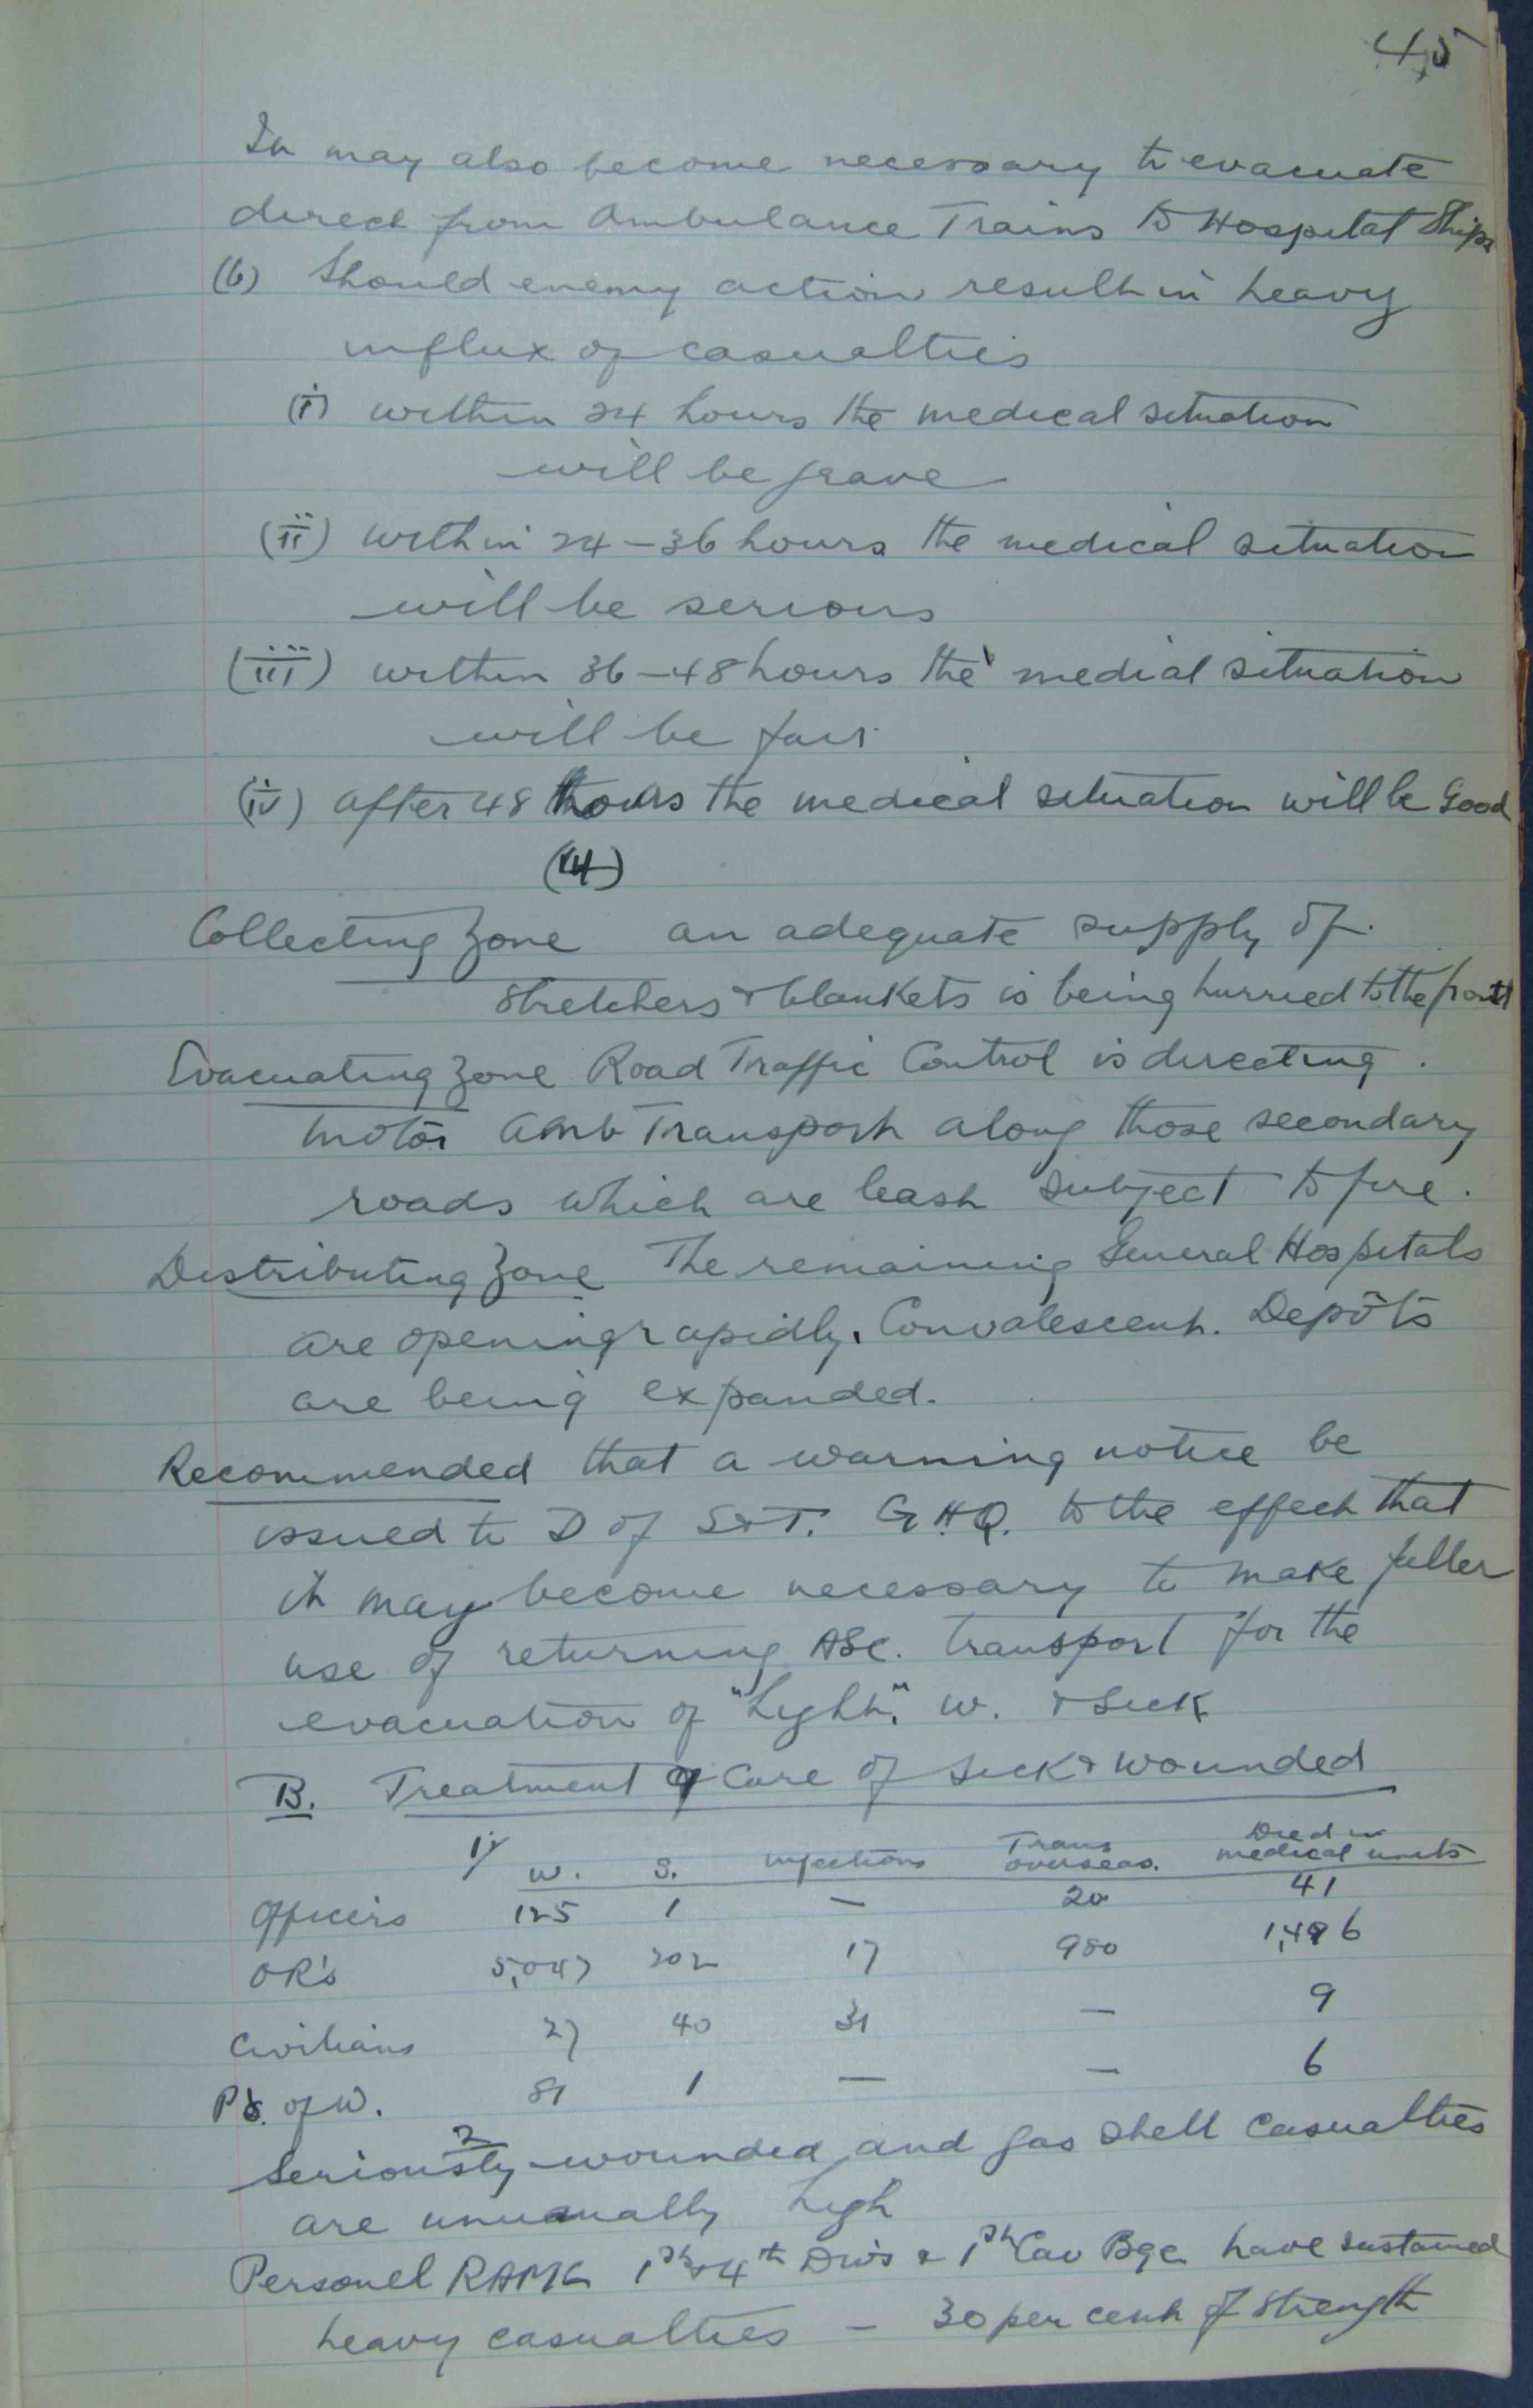 45
In may also become necessary to evacuate
direct from Ambulance Trains to Hospital Ships
(b) Should enemy action result in heavy
influx of casualties
(i) within 24 hours the medical situation
will be grave
(ii) within 24-36 hours the medical situation
will be serious
(iii) within 36-48 hours the medial situation
will be fair
(iv) after 48 hours the medical situation will be Good
(4)
Collecting Zone an adequate supply of
stretchers & blankets is being hurried to the front
Evacuating Zone Road Traffic Control is directing
motor Amb Transport along those secondary
roads which are least subject to fire.
Distributing Zone The remaining General Hospitals
are opening rapidly. Convalescent. Depôts
are being expanded.
Recommended that a warning notice be
issued to D of S&T. G.H.Q. to the effect that
it may become necessary to make fuller
use of returning ASC. transport for the
evacuation of "Light". w. & sick
B. Treatment & Care of sick & wounded
1/ w. S. infections Trans overseas. Died in medical units
Officers 125 1 — 20 41
OR's 5,047 202 17 980 1,496
Civilians 27 40 31 — 9
P's. of W. 81 1 — — 6
2
Seriously wounded and gas shell casualties
are unusually high
Personel RAMC 1st & 4th Divs & 1st Cav Bge have sustained
heavy casualties — 30 per cent of strength